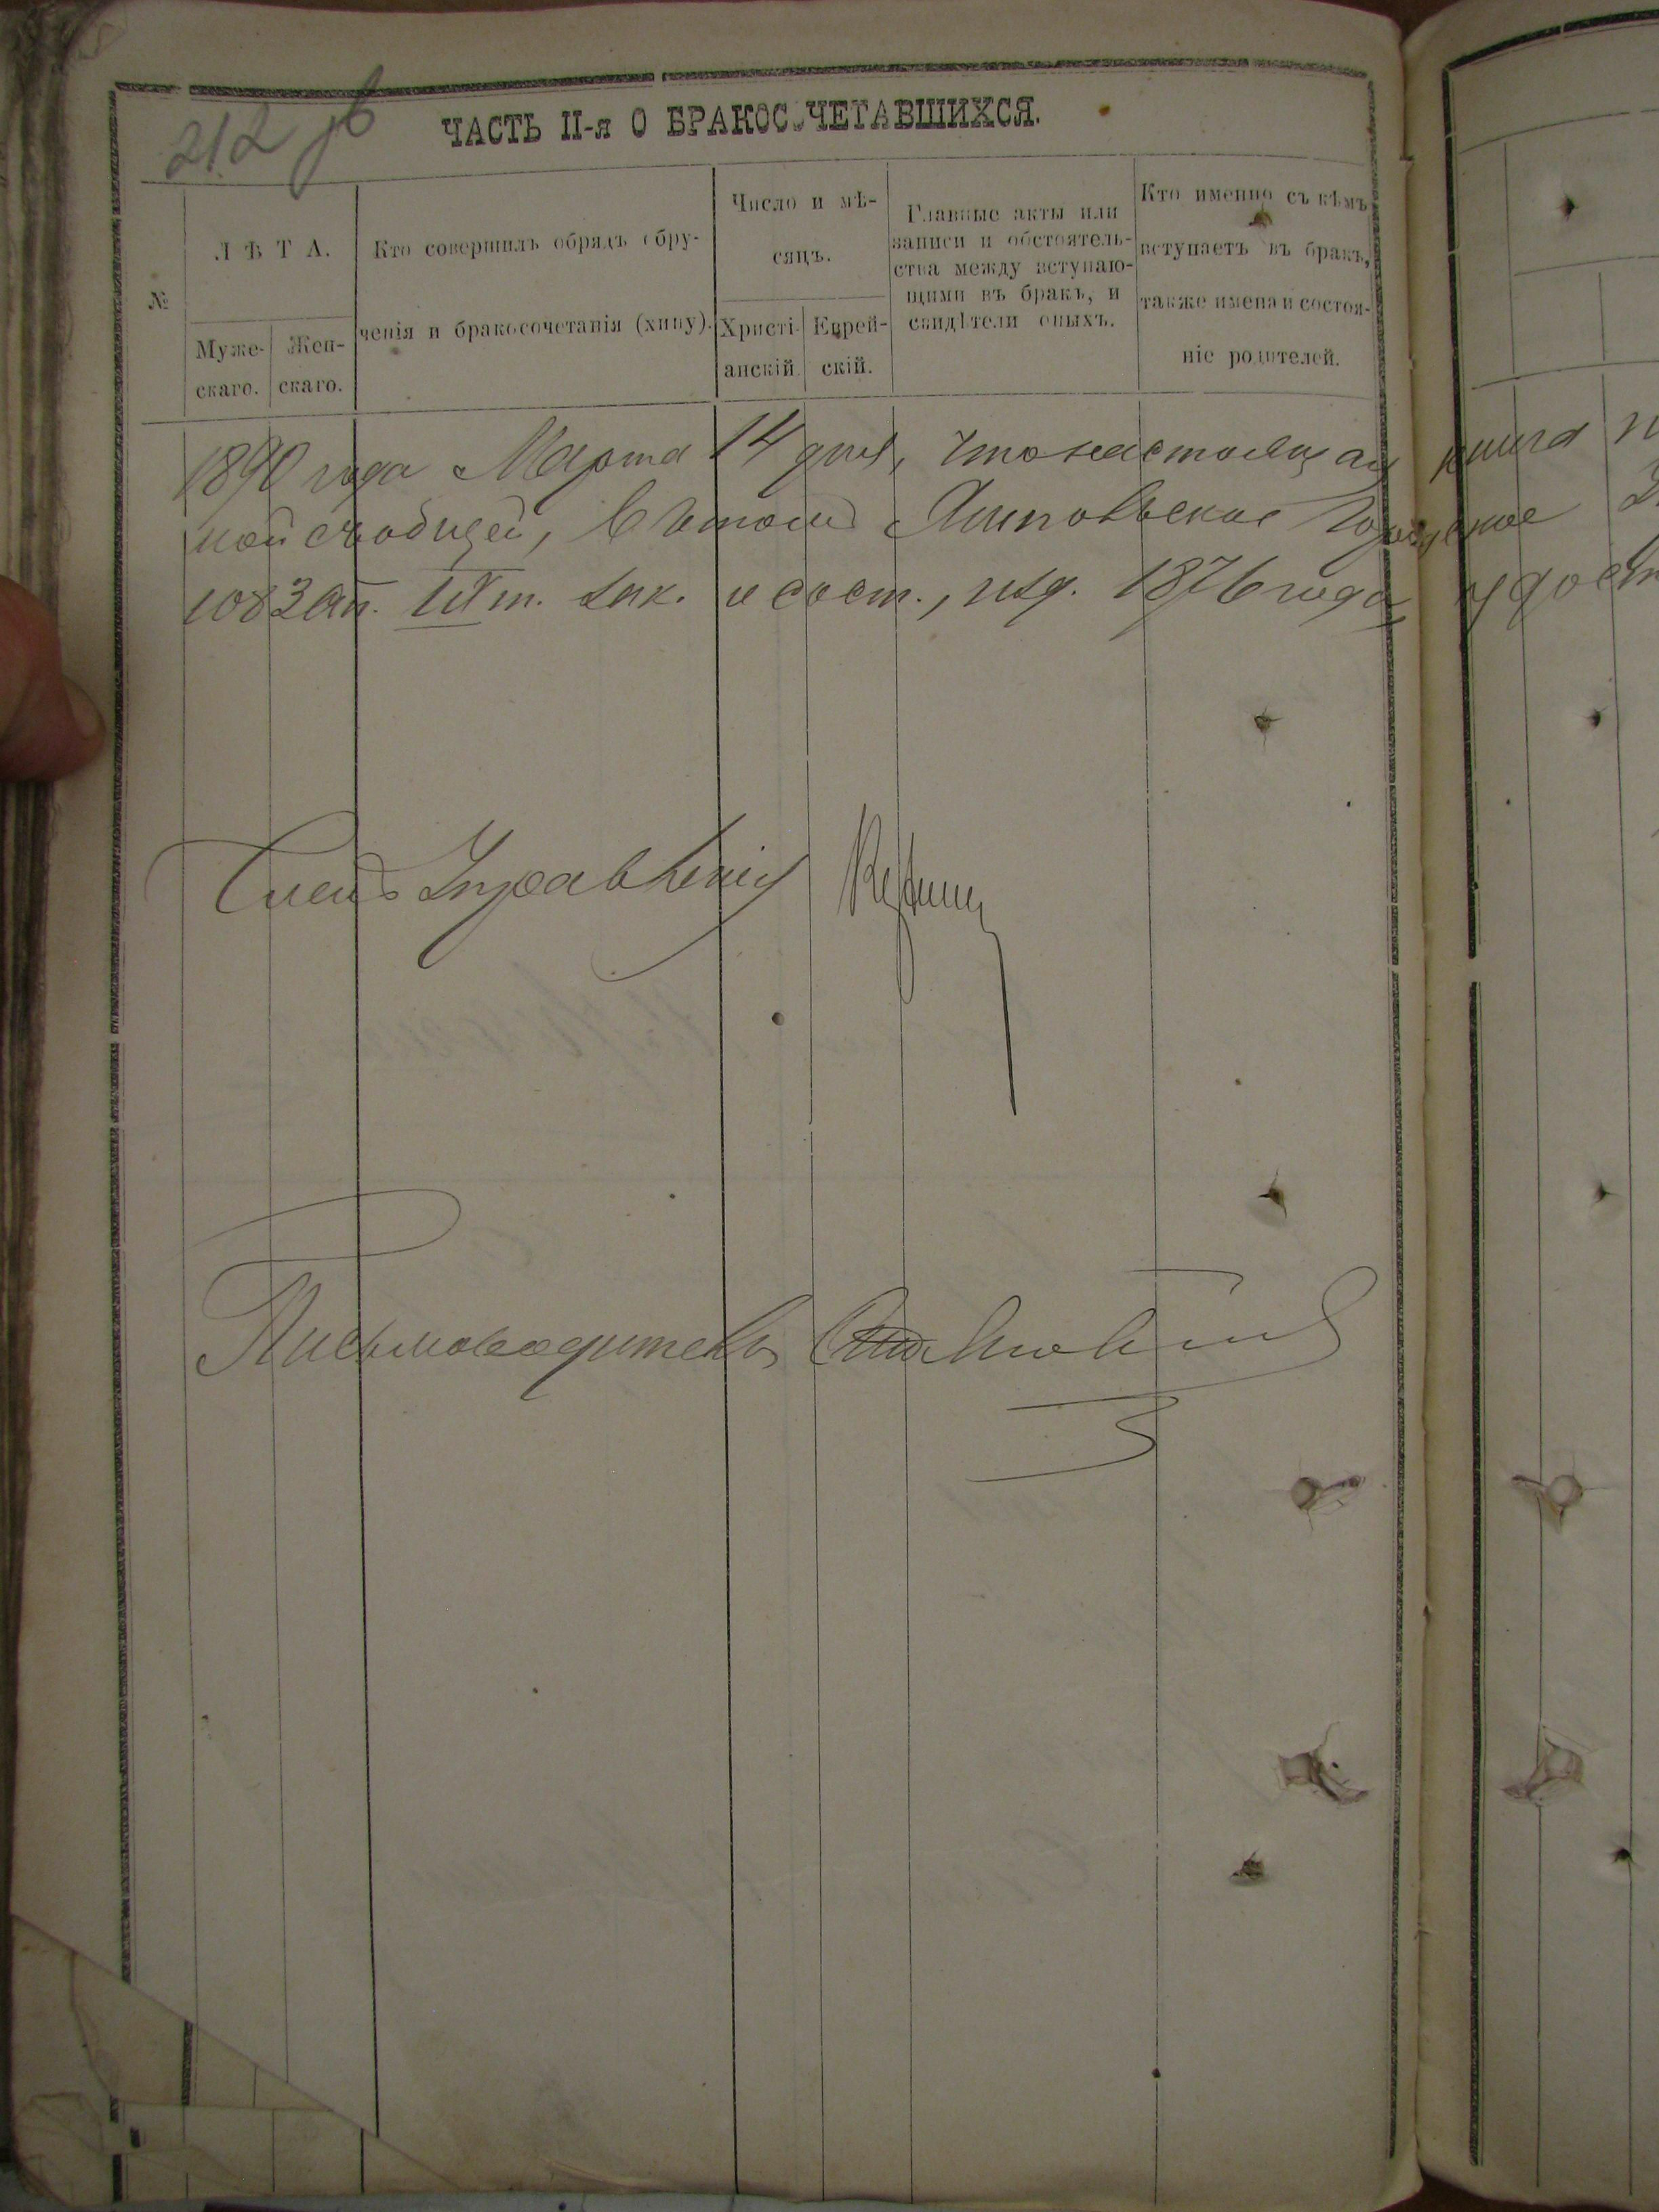 212 об
ЧАСТЬ II-я О БРАКОСОЧЕТАВШИХСЯ.
№
ЛѢТА.
Муже-
скаго.
Жен-
скаго.
Кто совершилъ обрядъ обру-
ченія и бракосочетанія (хипу).
Число и мѣ-
сяцъ.
Христі-
анскій
Еврей-
скій.
Главные акты или
записи и обстоятель-
ства между вступаю-
щими въ бракъ, и
свидѣтели оныхъ.
Кто именно съ кѣмъ
вступаетъ въ бракъ,
также имена и состоя-
ніе родителей.
1890 года Марта 14 дня, что настоящая книга
ной съ общей, въ томъ Липовецкое Городское
1083 ст. IX т. зак. о сост., изд. 1876 года, удост
Членъ Управленія
Письмоводитель